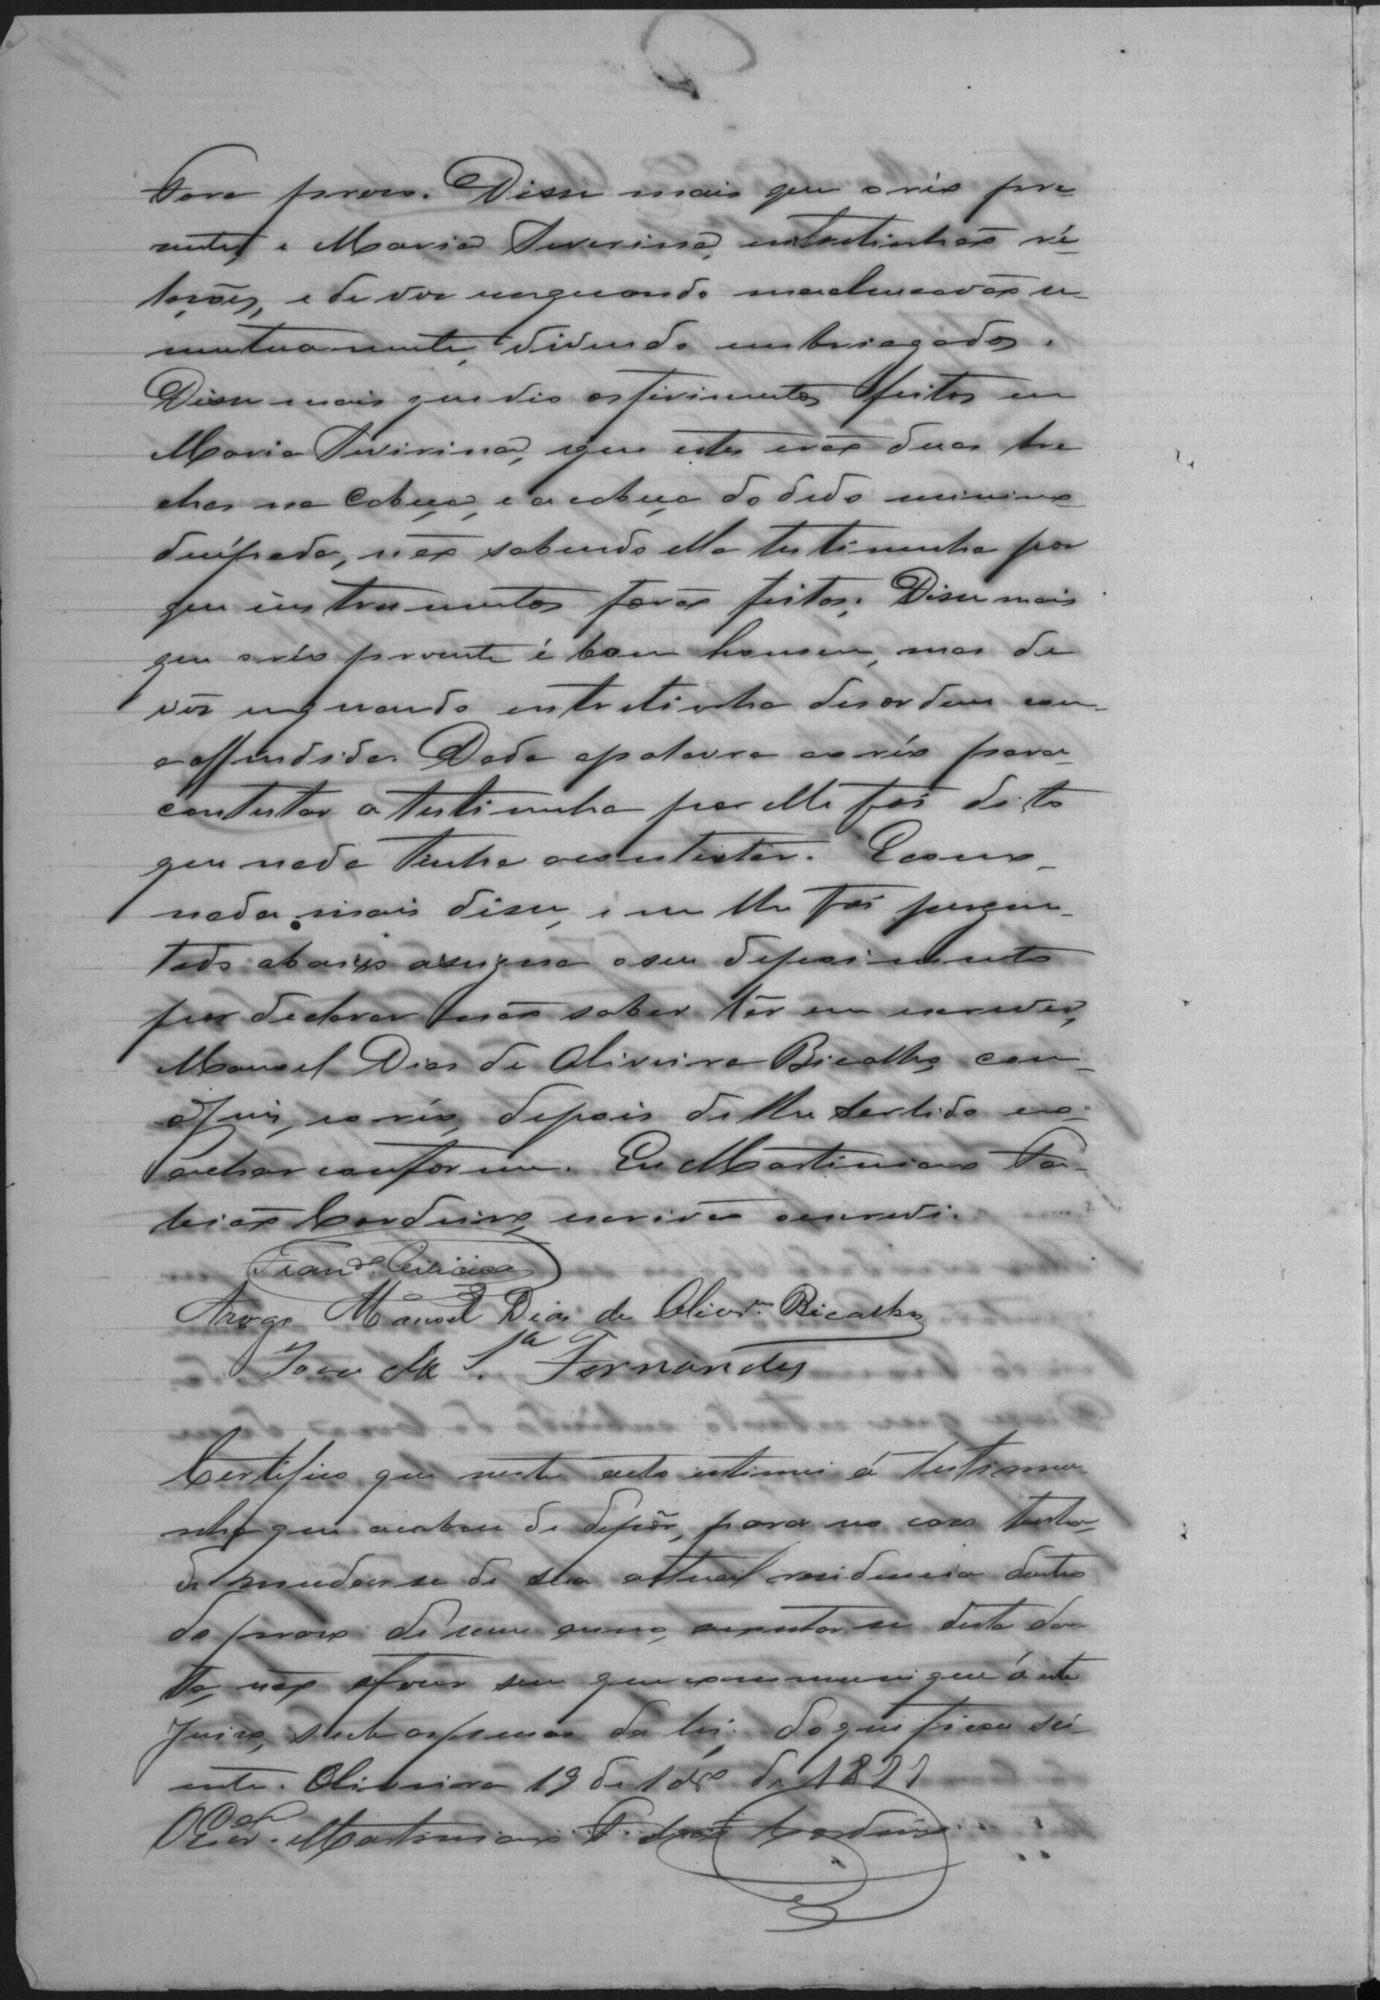 fora preso. Disse mais que o réo pre-
sente, e Maria Severina, entretinhão re-
lações, e de vez enquando machucavão se
mutuamente, vivendo embriagados.
Disse mais que vio os ferimentos feitos em
Maria Severina, que estes erão duas bre-
chas na cabeça, e a cabeça do dedo minimo
decipada, não sabendo ella testimunha por
que instrumentos forão feitos; Disse mais
que o réo presente é bom homem, mas de
vez enquando entretinha desordem com
a offendida. Dada a palavra ao réo para
contestar a testimunha por elle foi dito
que nada tinha a contestar. E como
nada mais disse, e nem lhe foi pergun-
tado abaixo assigna o seu depoimento
por declarar não saber lêr em escrever,
Manoel Dias de Oliveira Bicalho com
o Juis, e o réo, depois de lhe ser lido e o
achar conforme. Eu Martiniano To-
bias Cordeiro, escrivão o escrevi.
Arogo Manoel Dias de Olivr.ª Bicalho
João M S.ª Fernandes
Certifico que neste acto intimei á testimu-
nha que acabou de depôr, para no caso tenha
de mudar se de sua actual residencia dentro
do praso de um anno, a contar se desta da-
ta, não o faser sem que communique á este
Juiso, sub as penas da lei; do que ficou sci-
ente. Oliveira 19 de 1891
O Escr.am Martiniano Tobias Cordeiro